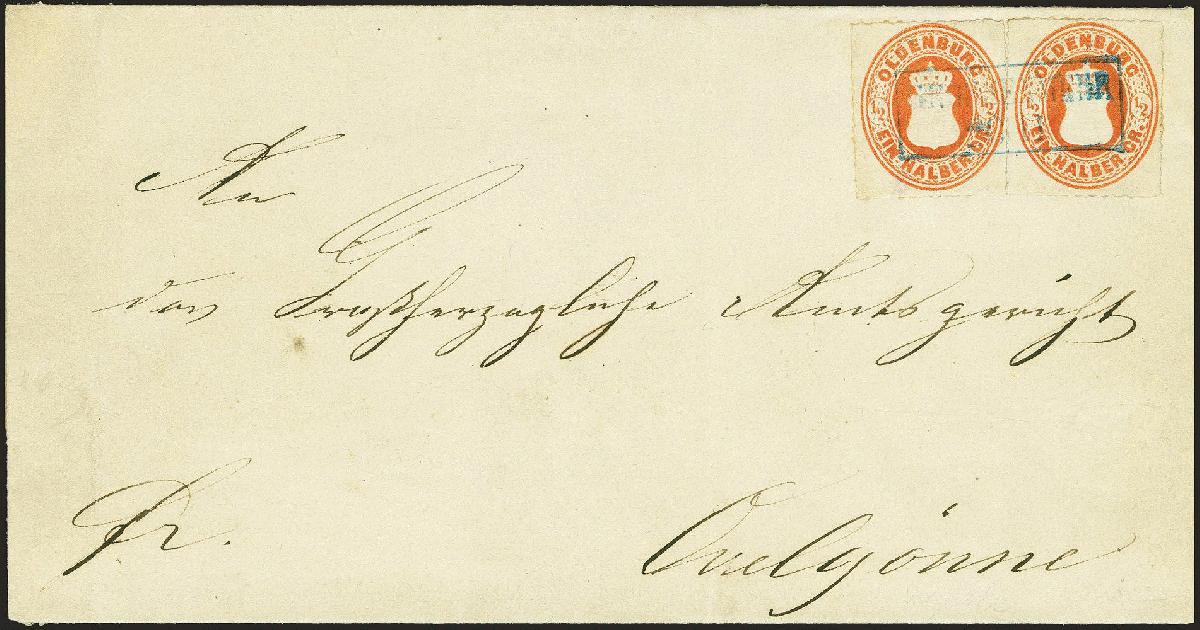 OLDENBURG
EIN HALBER GR.
1/2
1/2
OLDENBURG
EIN HALBER GR.
1/2
1/2
An
das Großherzogliche Amtsgericht
Fr.
Ovelgönne